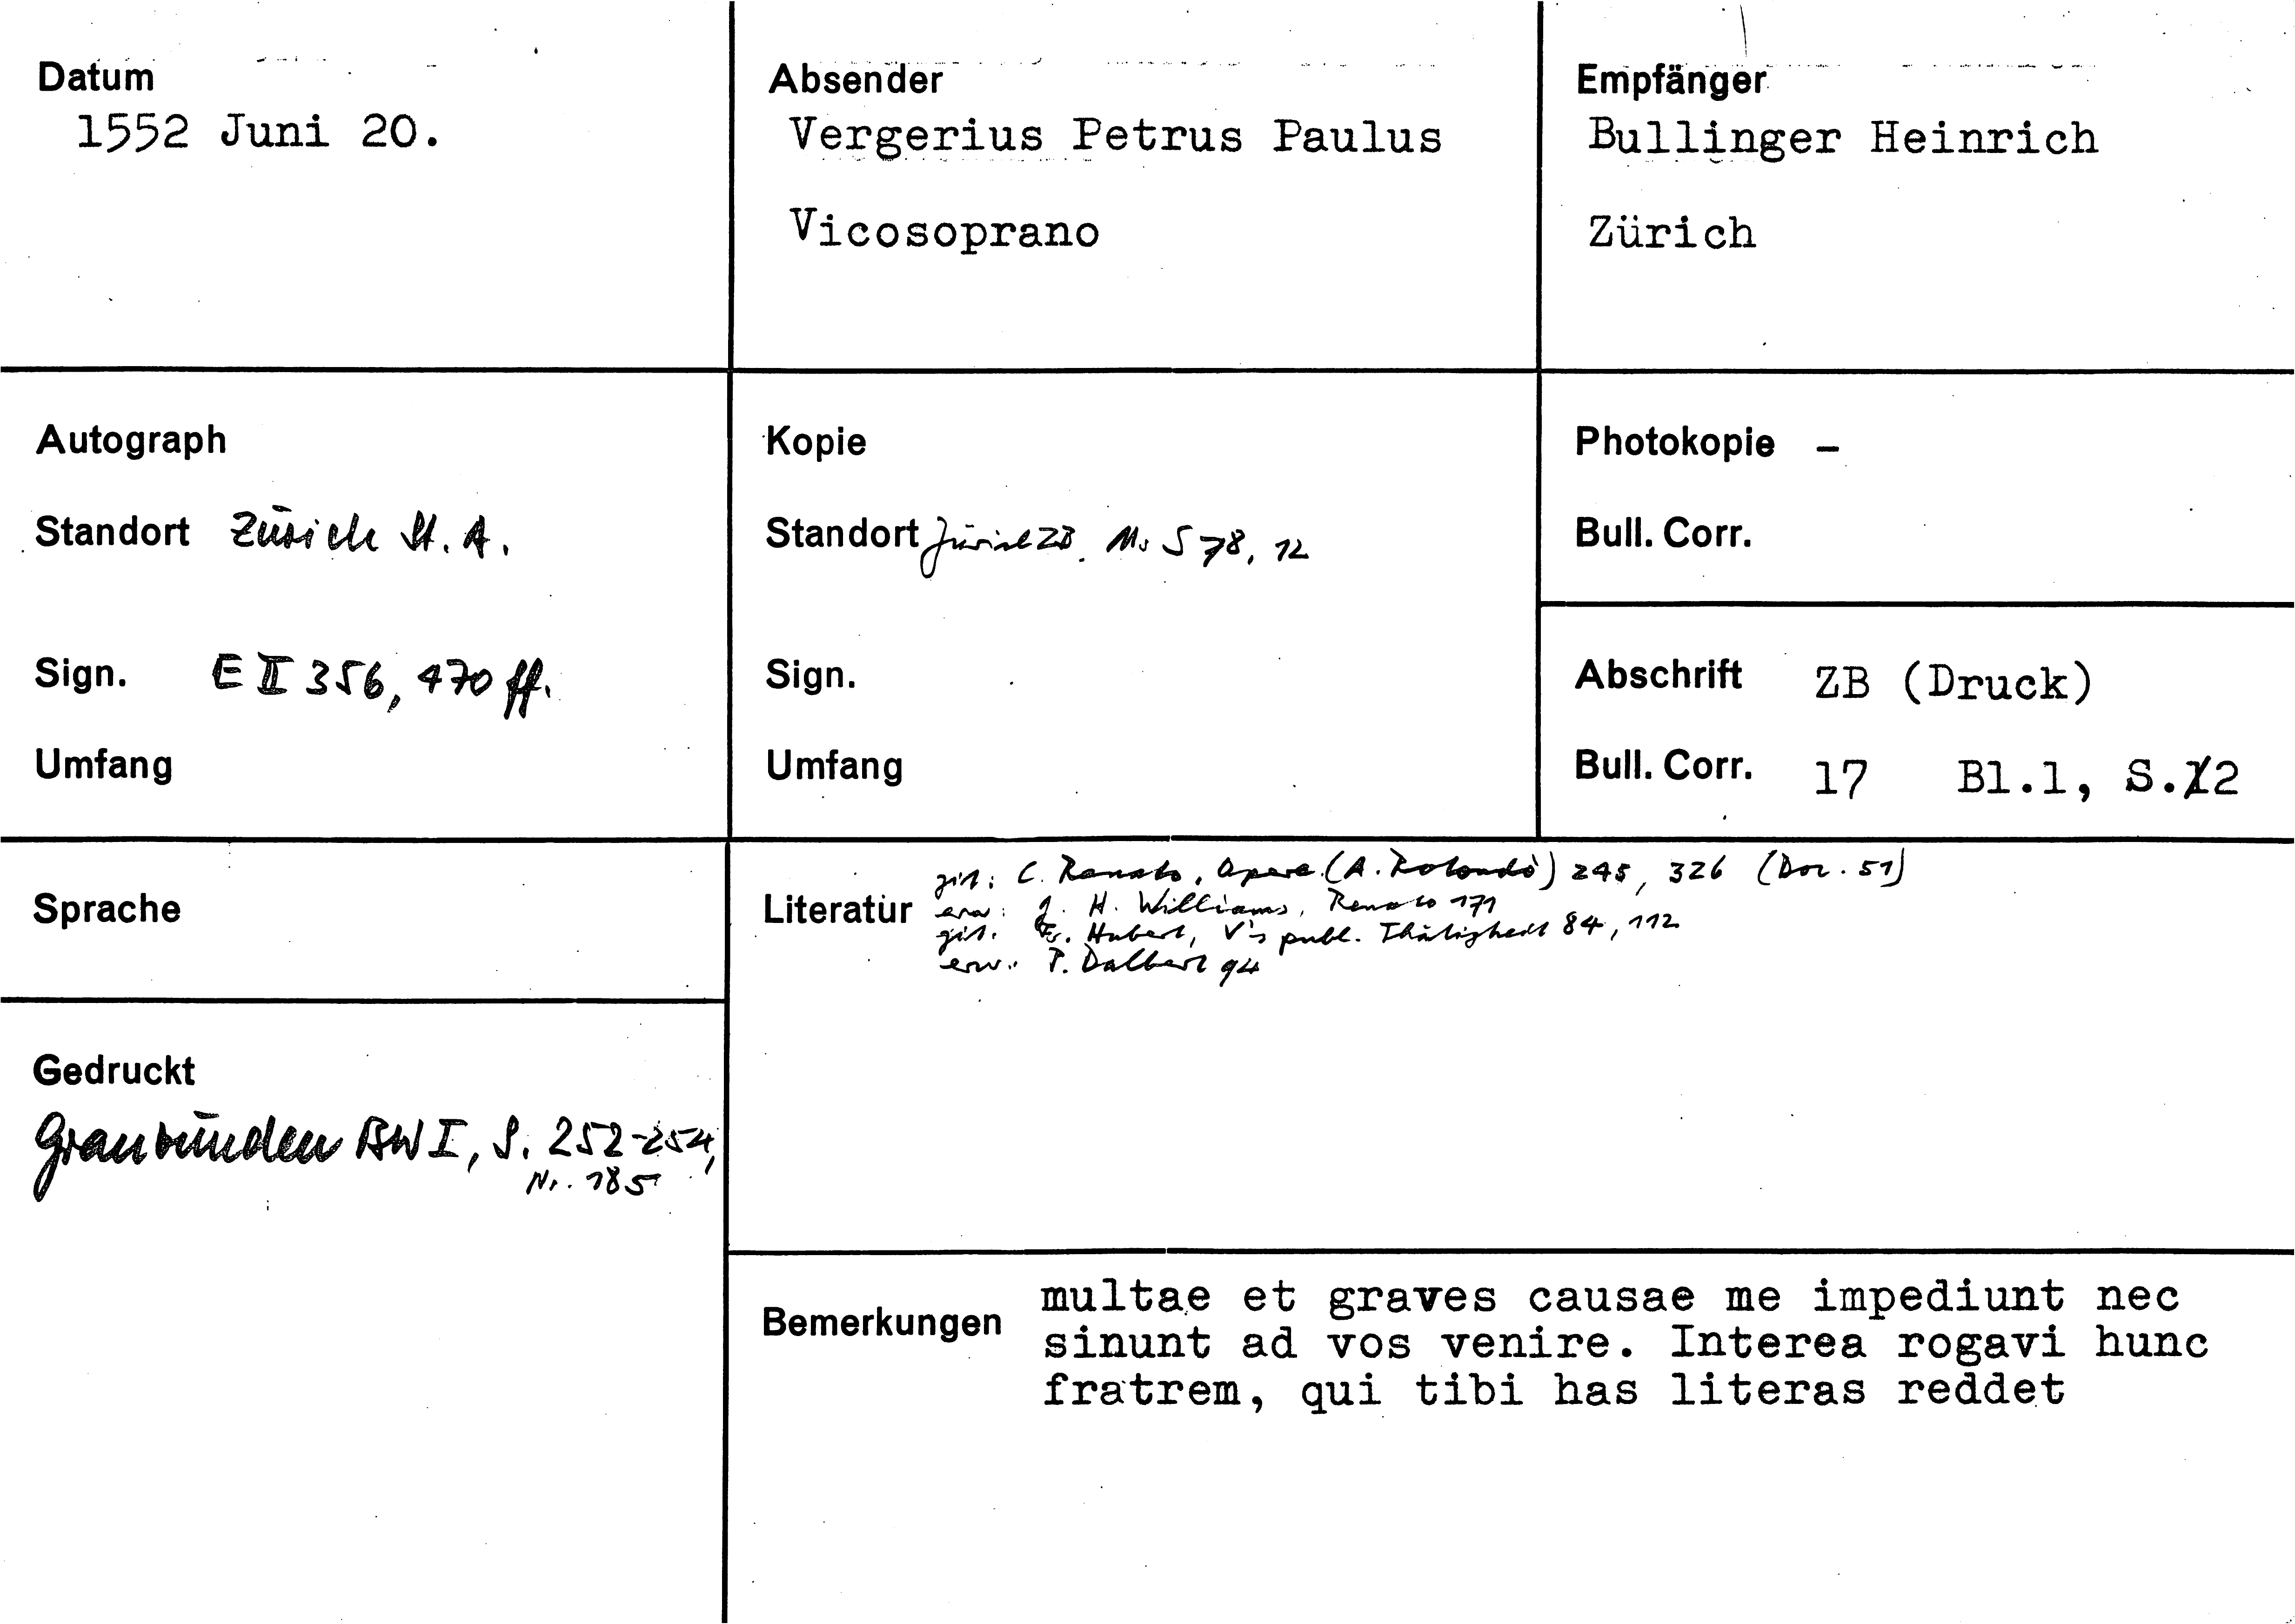 Datum
1552 Juni 20.
Absender
Vergerius Petrus Paulus
Vicosoprano
Empfänger
Bullinger Heinrich
Zürich
Autograph
Standort Zürich St. A.
Sign. E II 356, 470 ff.
Umfang
Kopie
Standort Zürich ZB. Ms S 78, 12
Sign.
Umfang
Photokopie -
Bull. Corr.
Abschrift ZB (Druck)
Bull. Corr. 17 Bl.1, S.2
Sprache
Gedruckt
Graubünden BW I, S. 252-254,
Nr. 185
Literatur
zit: C. Renato, Opere (A. Rotondò) 245, 326 (Doc. 51)
erw: J. H. Williams, Renato 171
zit. Fr. Hubert, V's publ. Thätigkeit 84, 112
erw.: P. Dalbert 94
Bemerkungen
multae et graves causae me impediunt nec
sinunt ad vos venire. Interea rogavi hunc
fratrem, qui tibi has literas reddet